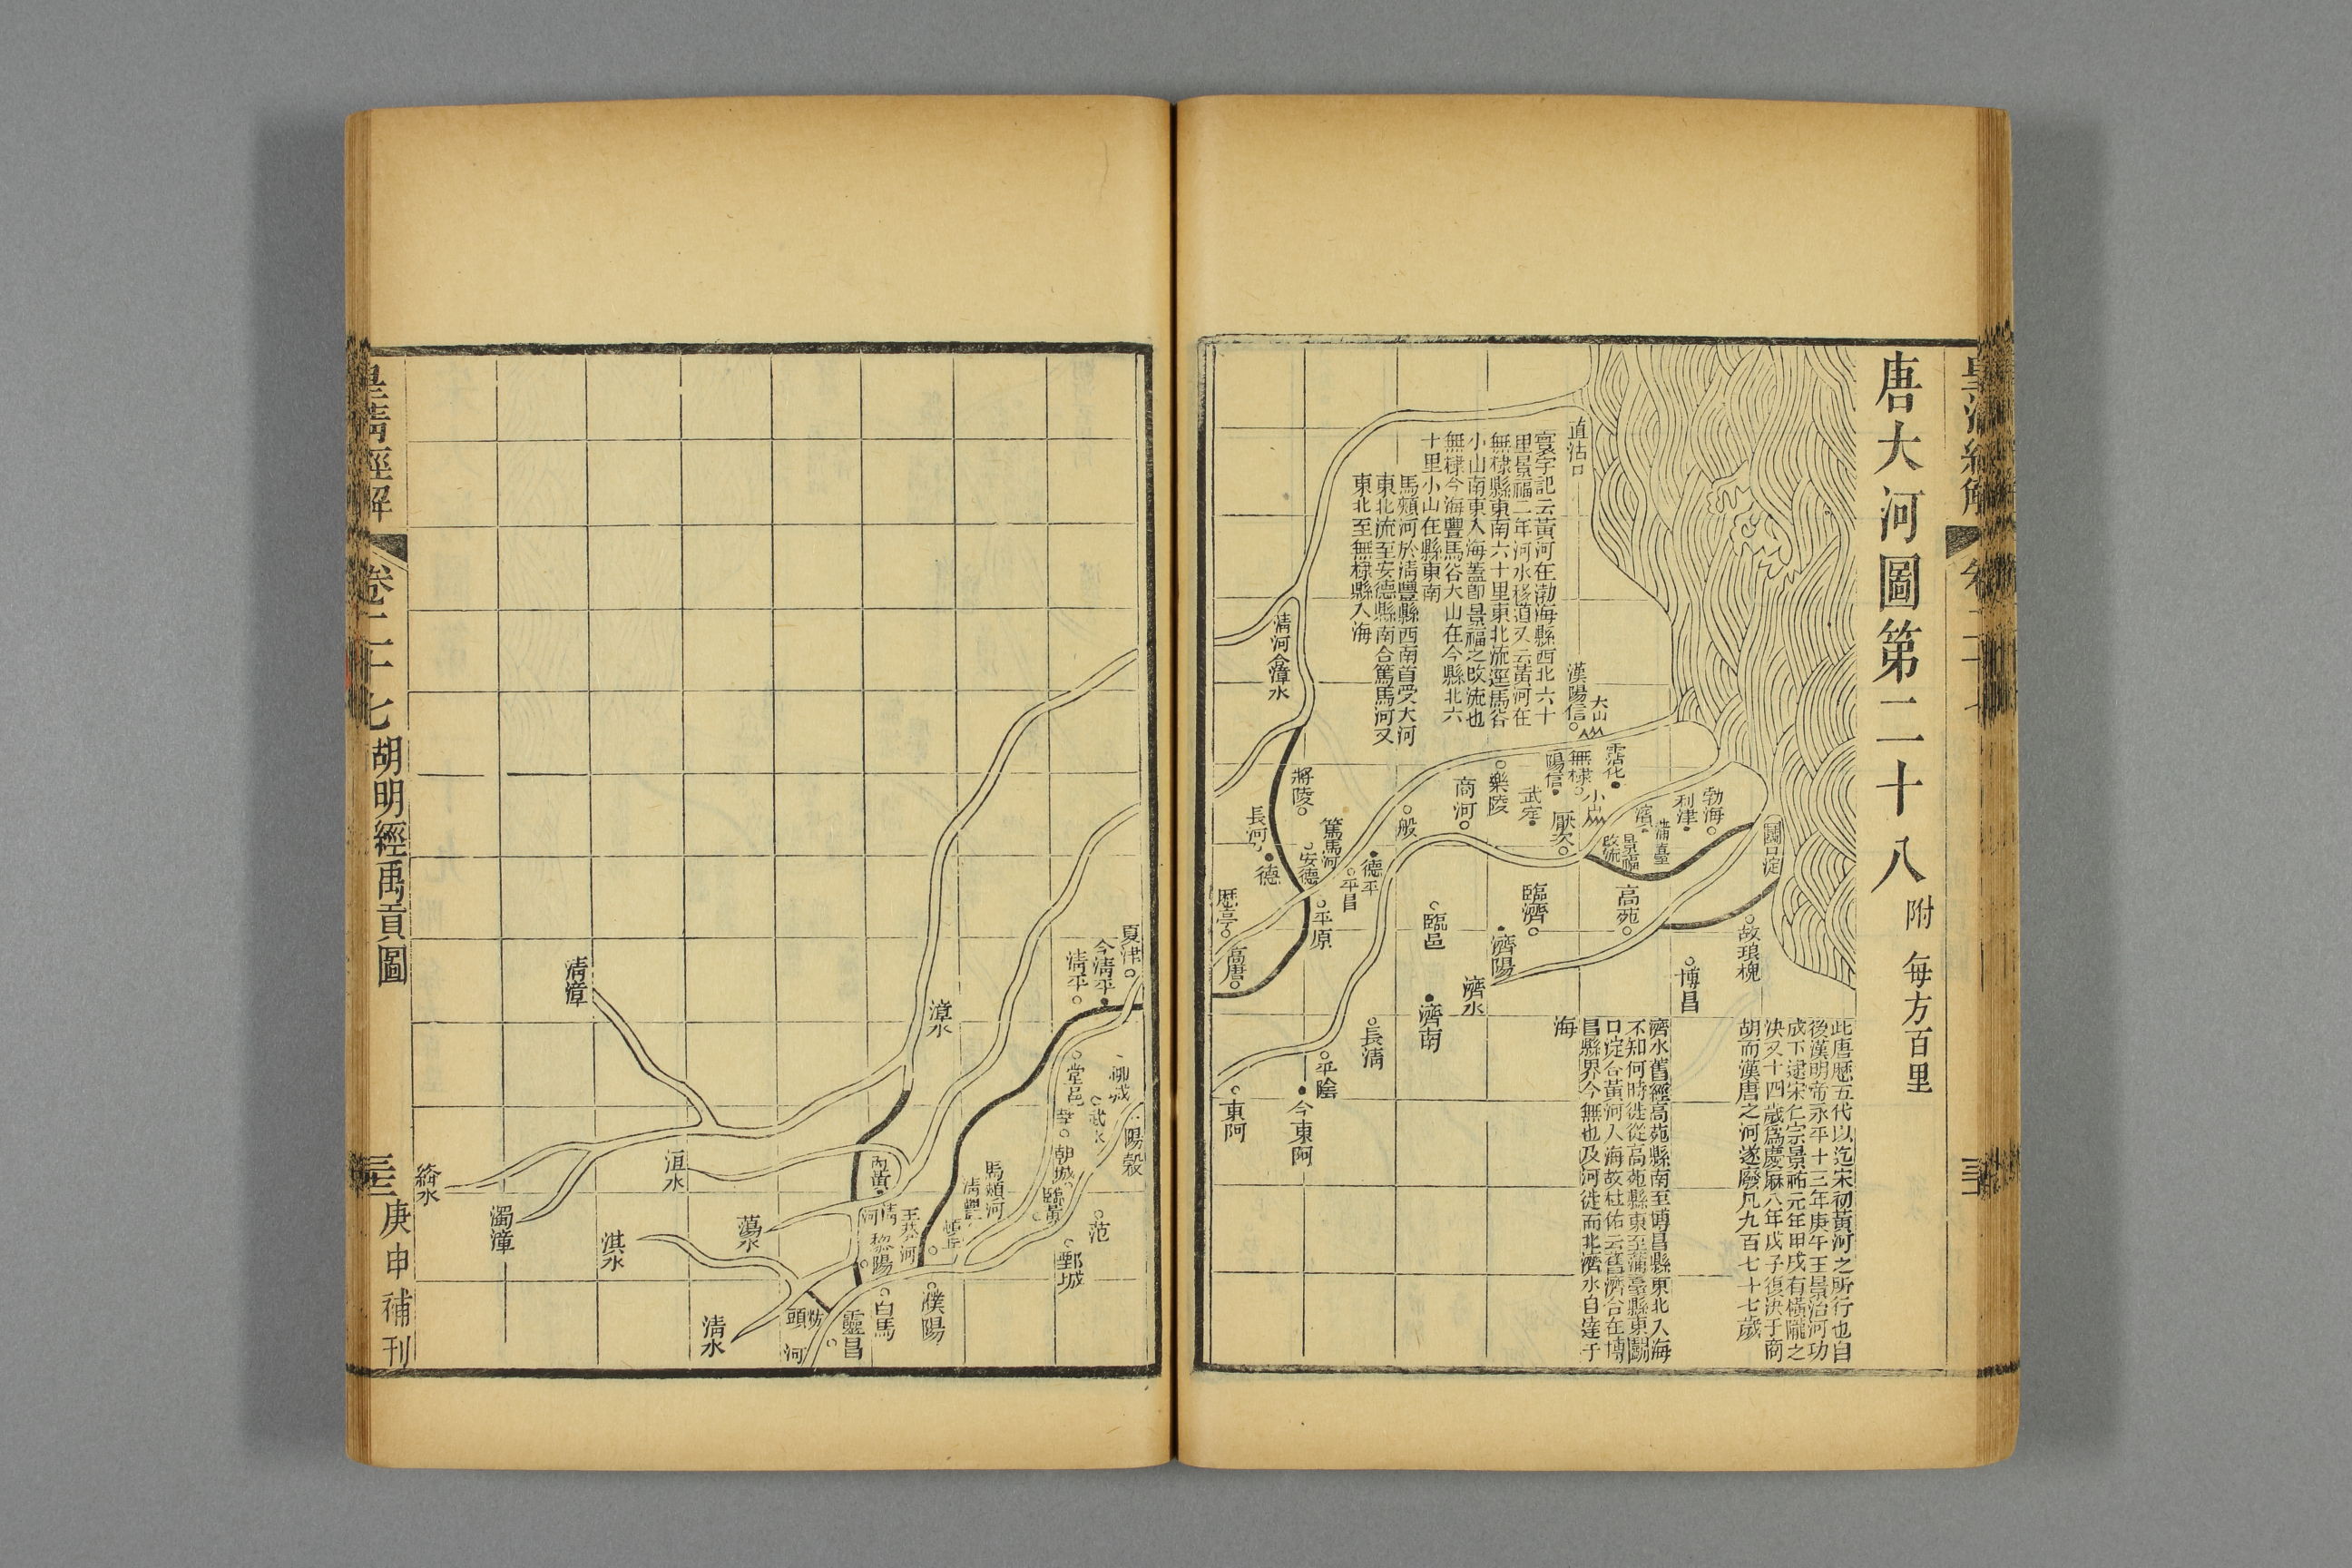 唐大河圖第二十八 附 每方百里
此唐歷五代以迄宋初黃河之所行也自
後漢明帝永平十三年庚午王景治河功
成下逮宋仁宗景祐元年甲戌有橫隴之
決又十四歲為慶厤八年戊子復決于商
胡而漢唐之河遂廢凡九百七十七歲
濟水舊經高苑縣南至博昌縣東北入海
不知何時徙從高苑縣東至蒲臺縣東鬭
口淀合黃河入海故杜佑云舊濟合在博
昌縣界今無也及河徙而北濟水自達于
海
直沽口
寰宇記云黃河在渤海縣西北六十
里景福二年河水移道又云黃河在
無棣縣東南六十里東北流逕馬谷
小山南東入海蓋卽景福之改流也
無棣今海豐馬谷大山在今縣北六
十里小山在縣東南
馬頰河於清豐縣西南首受大河
東北流至安德縣南合篤馬河又
東北至無棣縣入海
清河合漳水
漢陽信
大山
霑化
無棣
陽信
小山
勃海
利津
濱
蒲臺
景福
改流
鬭口淀
厭次
武定
樂陵
商河
般
將陵
長河
德
篤馬河
安德
德平
平昌
平原
歷亭
高唐
臨邑
臨濟
高苑
故琅槐
博昌
濟陽
濟水
濟南
長清
平陰
今東阿
東阿
夏津
今清平
清平
漳水
清漳
堂邑
聊城
武水
陽穀
莘
朝城
臨黃
范
鄄城
馬頰河
清豐
頓丘
內黃
清河
王莽河
黎陽
濮陽
白馬
靈昌
枋頭
河
洹水
蕩水
淇水
清水
濁漳
絳水
皇清經解
卷二十七
胡明經禹貢圖
三三
庚申補刊